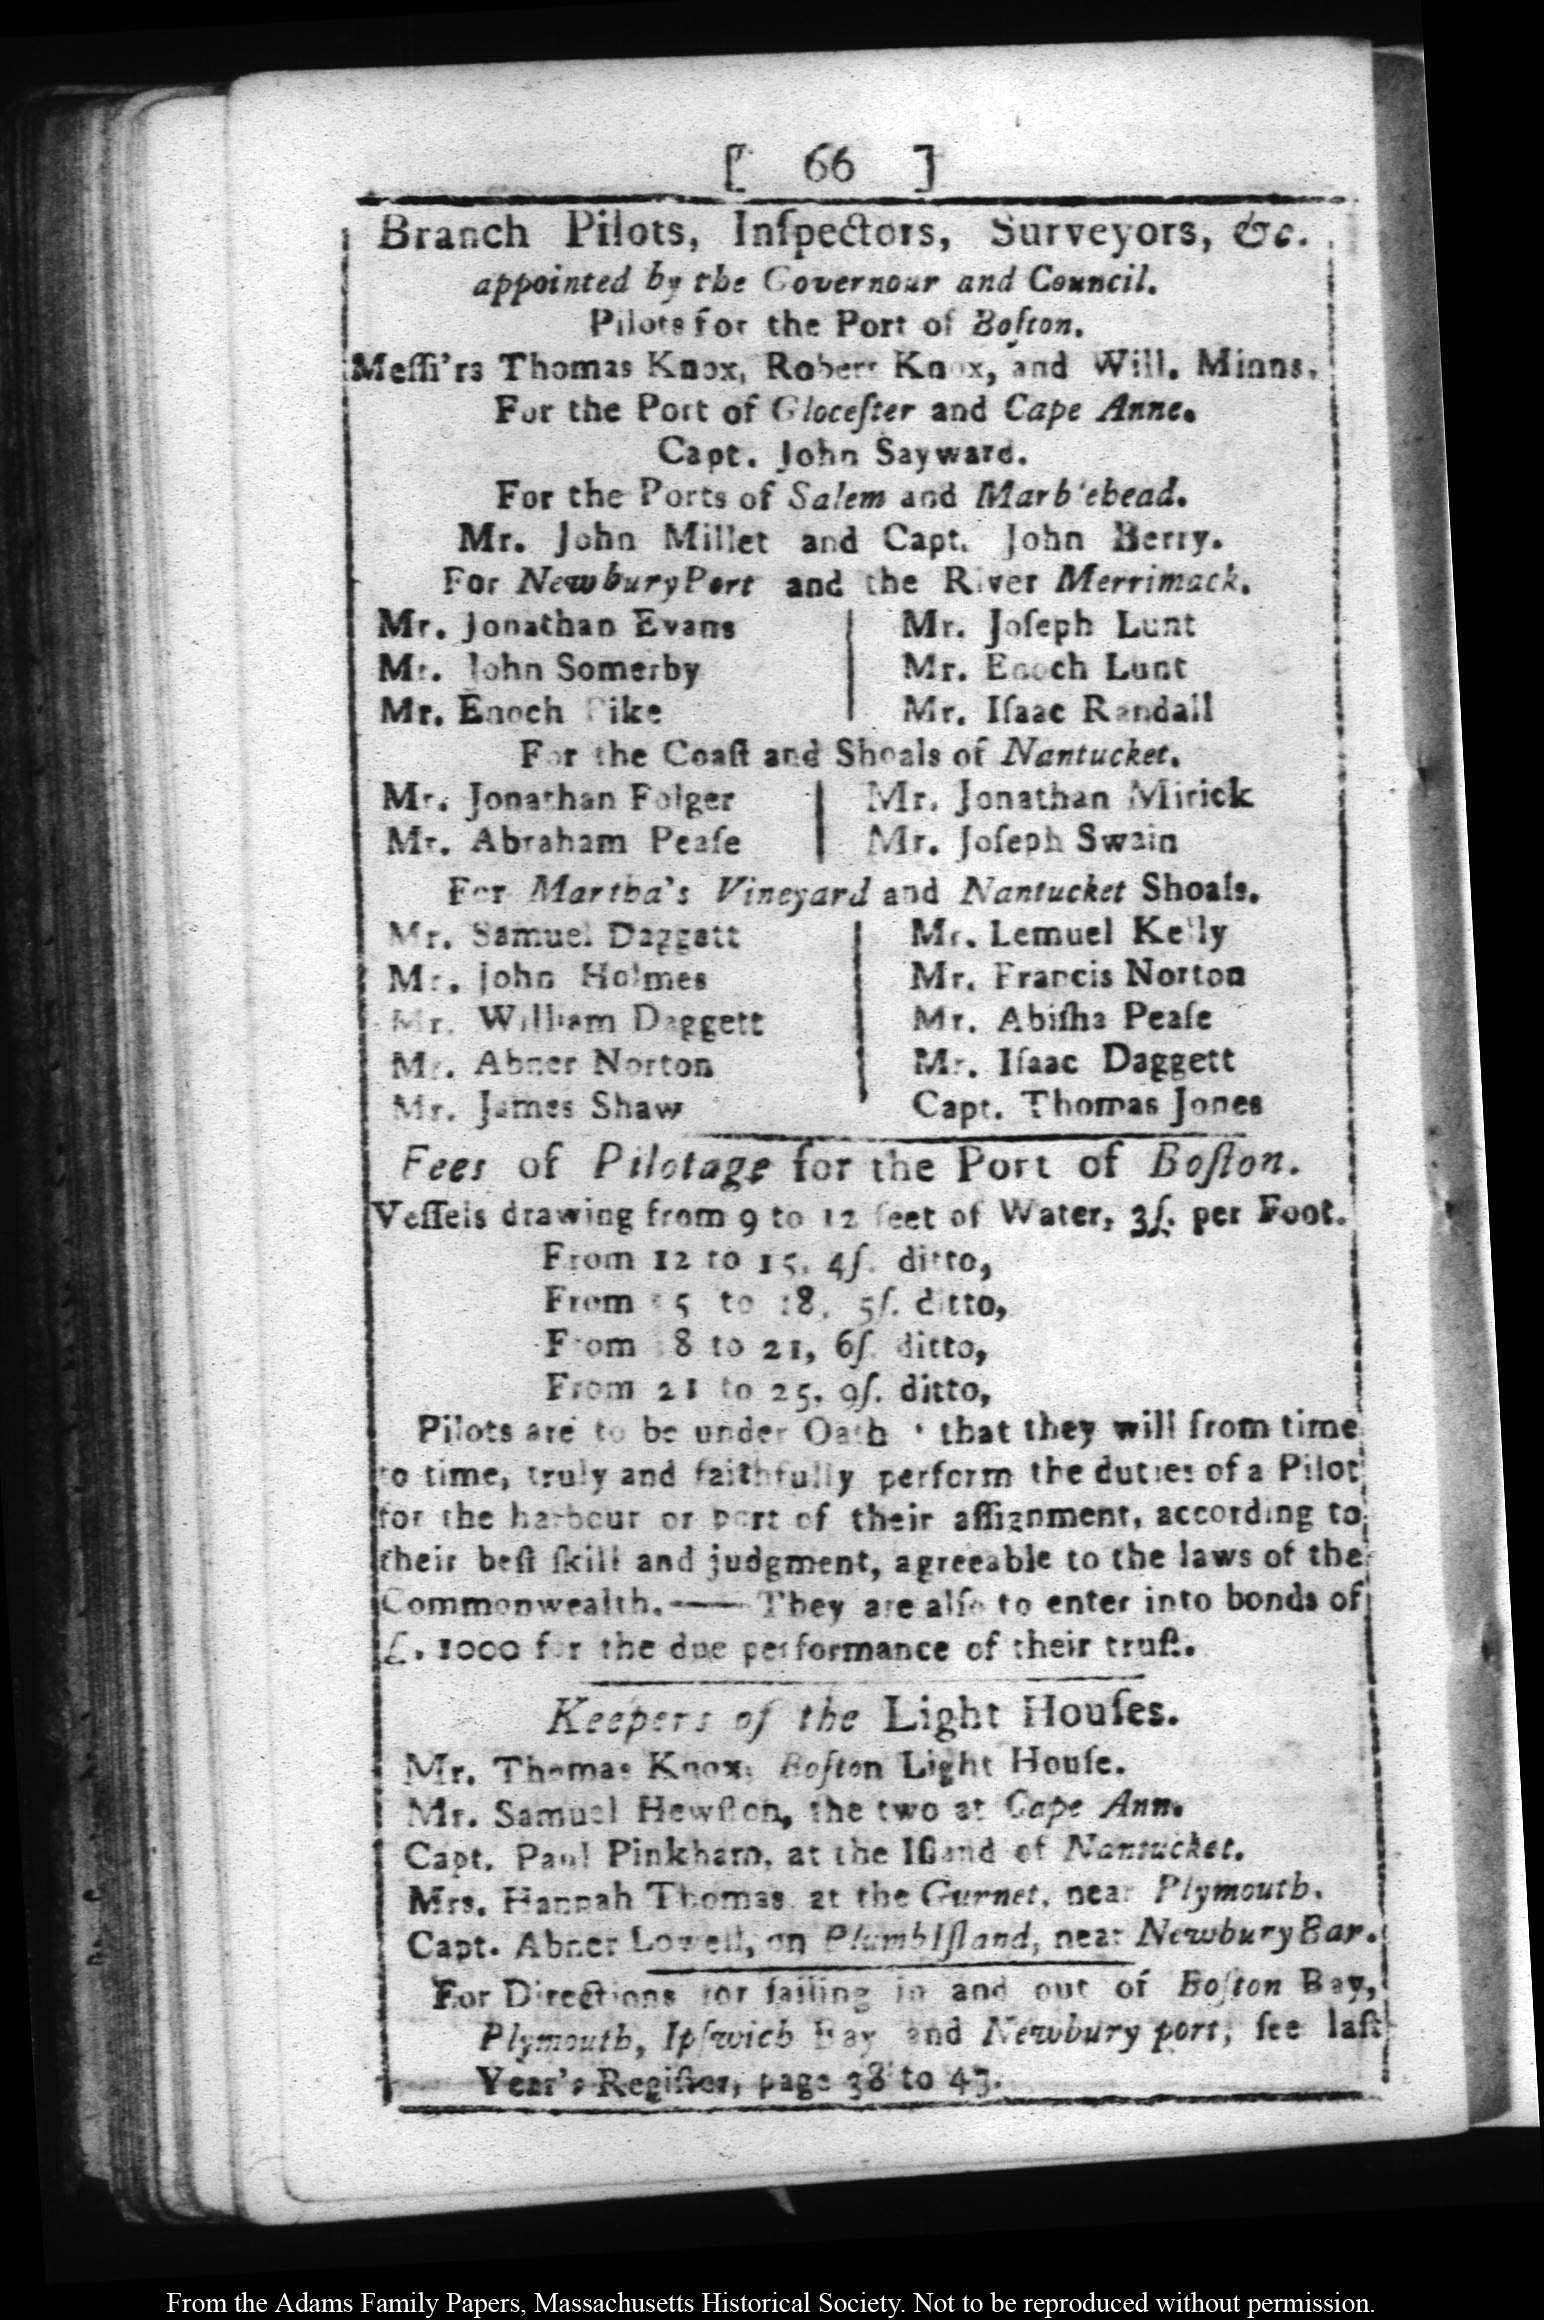 [ 66 ]
Branch Pilots, Inſpectors, Surveyors, &c.
appointed by the Governour and Council.
Pilots for the Port of Boſton.
Meſſi'rs Thomas Knox, Robert Knox, and Will. Minns.
For the Port of Gloceſter and Cape Anne.
Capt. John Sayward.
For the Ports of Salem and Marblehead.
Mr. John Millet and Capt. John Berry.
For NewburyPort and the River Merrimack.
Mr. Jonathan Evans | Mr. Joſeph Lunt
Mr. John Somerby | Mr. Enoch Lunt
Mr. Enoch Pike | Mr. Iſaac Randall
For the Coaſt and Shoals of Nantucket.
Mr. Jonathan Folger | Mr. Jonathan Mirick
Mr. Abraham Peaſe | Mr. Joſeph Swain
For Martha's Vineyard and Nantucket Shoals.
Mr. Samuel Daggatt | Mr. Lemuel Kelly
Mr. John Holmes | Mr. Francis Norton
Mr. William Daggett | Mr. Abiſha Peaſe
Mr. Abner Norton | Mr. Iſaac Daggett
Mr. James Shaw | Capt. Thomas Jones
Fees of Pilotage for the Port of Boſton.
Veſſels drawing from 9 to 12 feet of Water, 3ſ. per Foot.
From 12 to 15, 4ſ. ditto,
From 15 to 18, 5ſ. ditto,
From 18 to 21, 6ſ. ditto,
From 21 to 25, 9ſ. ditto,
Pilots are to be under Oath ' that they will from time
to time, truly and faithfully perform the duties of a Pilot
for the harbour or port of their aſſignment, according to
their beſt ſkill and judgment, agreeable to the laws of the
Commonwealth.—— They are alſo to enter into bonds of
£. 1000 for the due performance of their truſt.
Keepers of the Light Houſes.
Mr. Thomas Knox, Boſton Light Houſe.
Mr. Samuel Hewſton, the two at Cape Ann.
Capt. Paul Pinkham, at the Iſland of Nantucket.
Mrs. Hannah Thomas at the Gurnet, near Plymouth.
Capt. Abner Lowell, on PlumbIſland, near NewburyBar.
For Directions for ſailing in and out of Boſton Bay,
Plymouth, Ipſwich Bay and Newbury port, ſee laſt
Year's Regiſter, page 38 to 43.
From the Adams Family Papers, Massachusetts Historical Society. Not to be reproduced without permission.